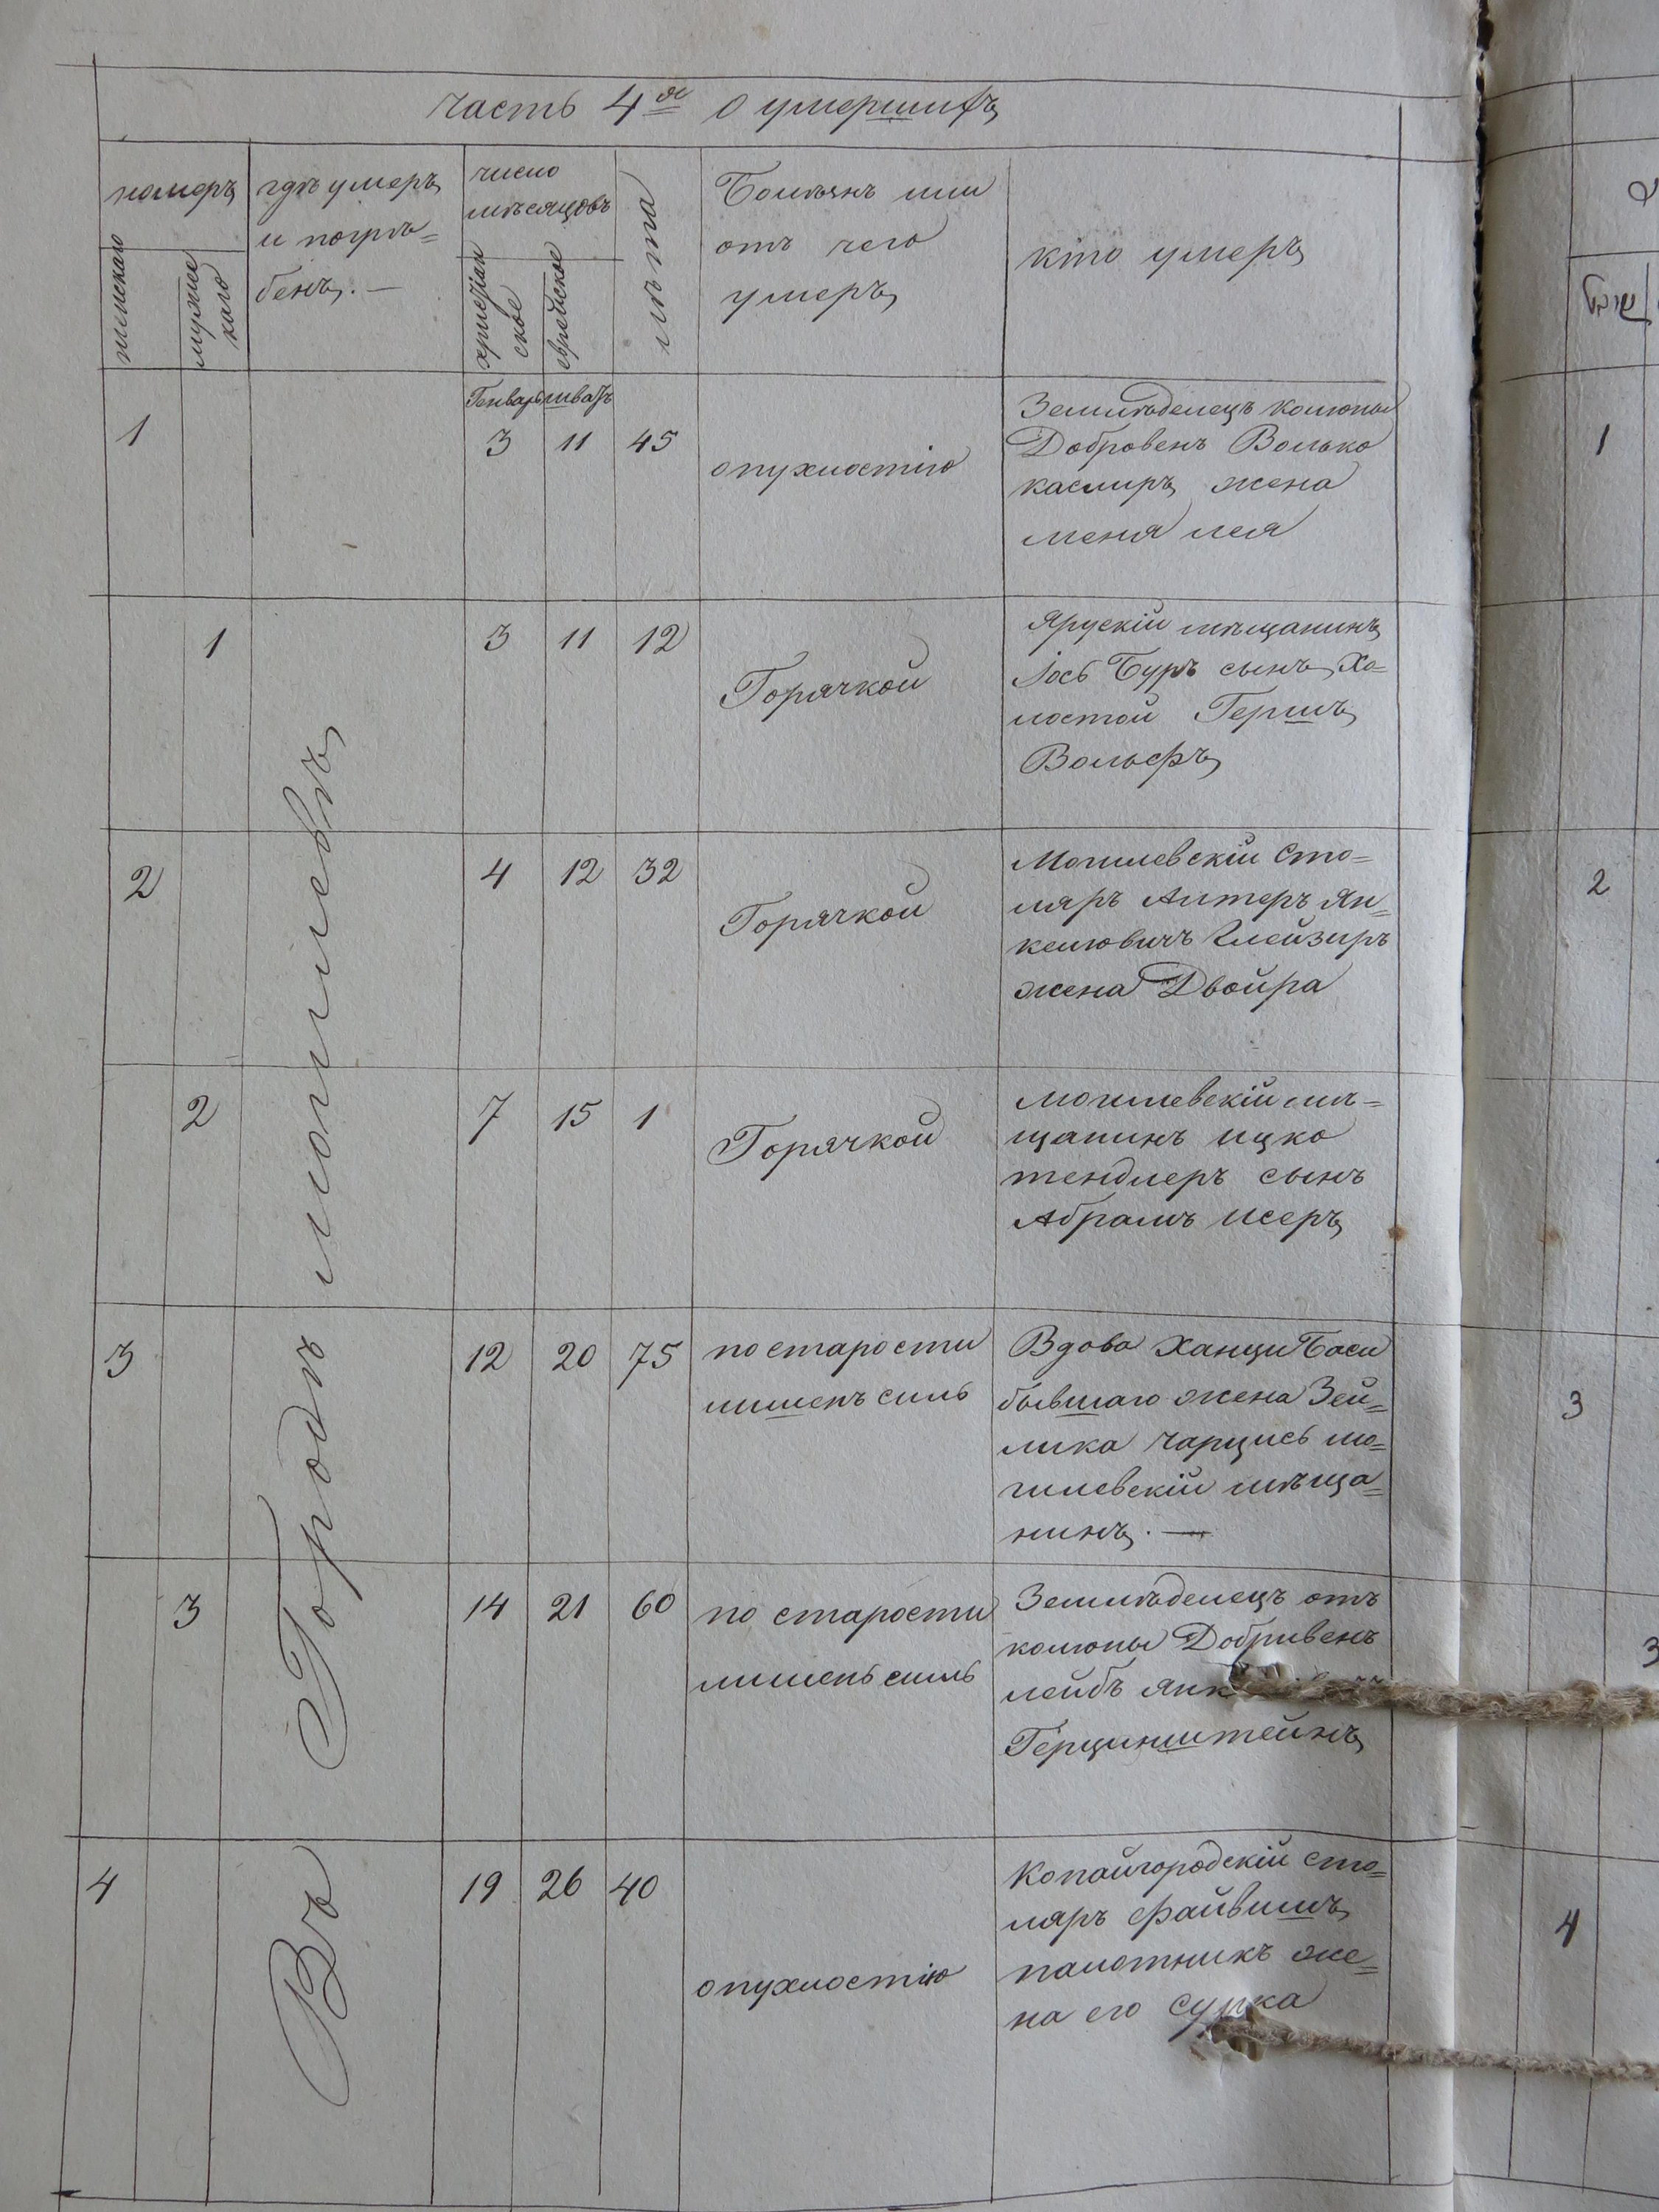 часть 4я о умершихъ
номеръ
женскаго
мужес
каго
гдѣ умеръ
и погрѣ=
бенъ. —
число
мѣсяцовъ
христіан
ское
еврейское
лѣта
Болѣзнь или
отъ чего
умеръ
кто умеръ
Генварь шватъ
1
3 11 45
опухлостію
Земледѣлецъ колоныи
Добровенъ Волько
каслиръ жена
меня лея
1
3 11 12
Горячкой
Ярускій мѣщанинъ
Іось Буръ сынъ Хо=
лостой Гершъ
Вольфъ
2
4 12 32
Горячкой
Могилевскій сто=
ляръ Алтеръ Ян=
келювичъ Глейзиръ
жена Двойра
2
7 15 1
Горячкой
Могилевскій мѣ=
щанинъ ицко
тендлеръ сынъ
Абрамъ исеръ
3
12 20 75
по старости
лишенъ силь
Вдова Ханци Баси
бывшаго жена Зей=
лика чарцись мо=
гилевскій мѣща=
нинъ. —
3
14 21 60
по старости
лишенъ силь
Земледѣлецъ отъ
колоны Добривенъ
лейбъ
Герцинштейнъ
4
19 26 40
опухлостію
Копайгородскій сто=
ляръ файвишъ
палотникъ же=
на его сурка
Въ Городѣ могилевѣ
1
2
3
3
4